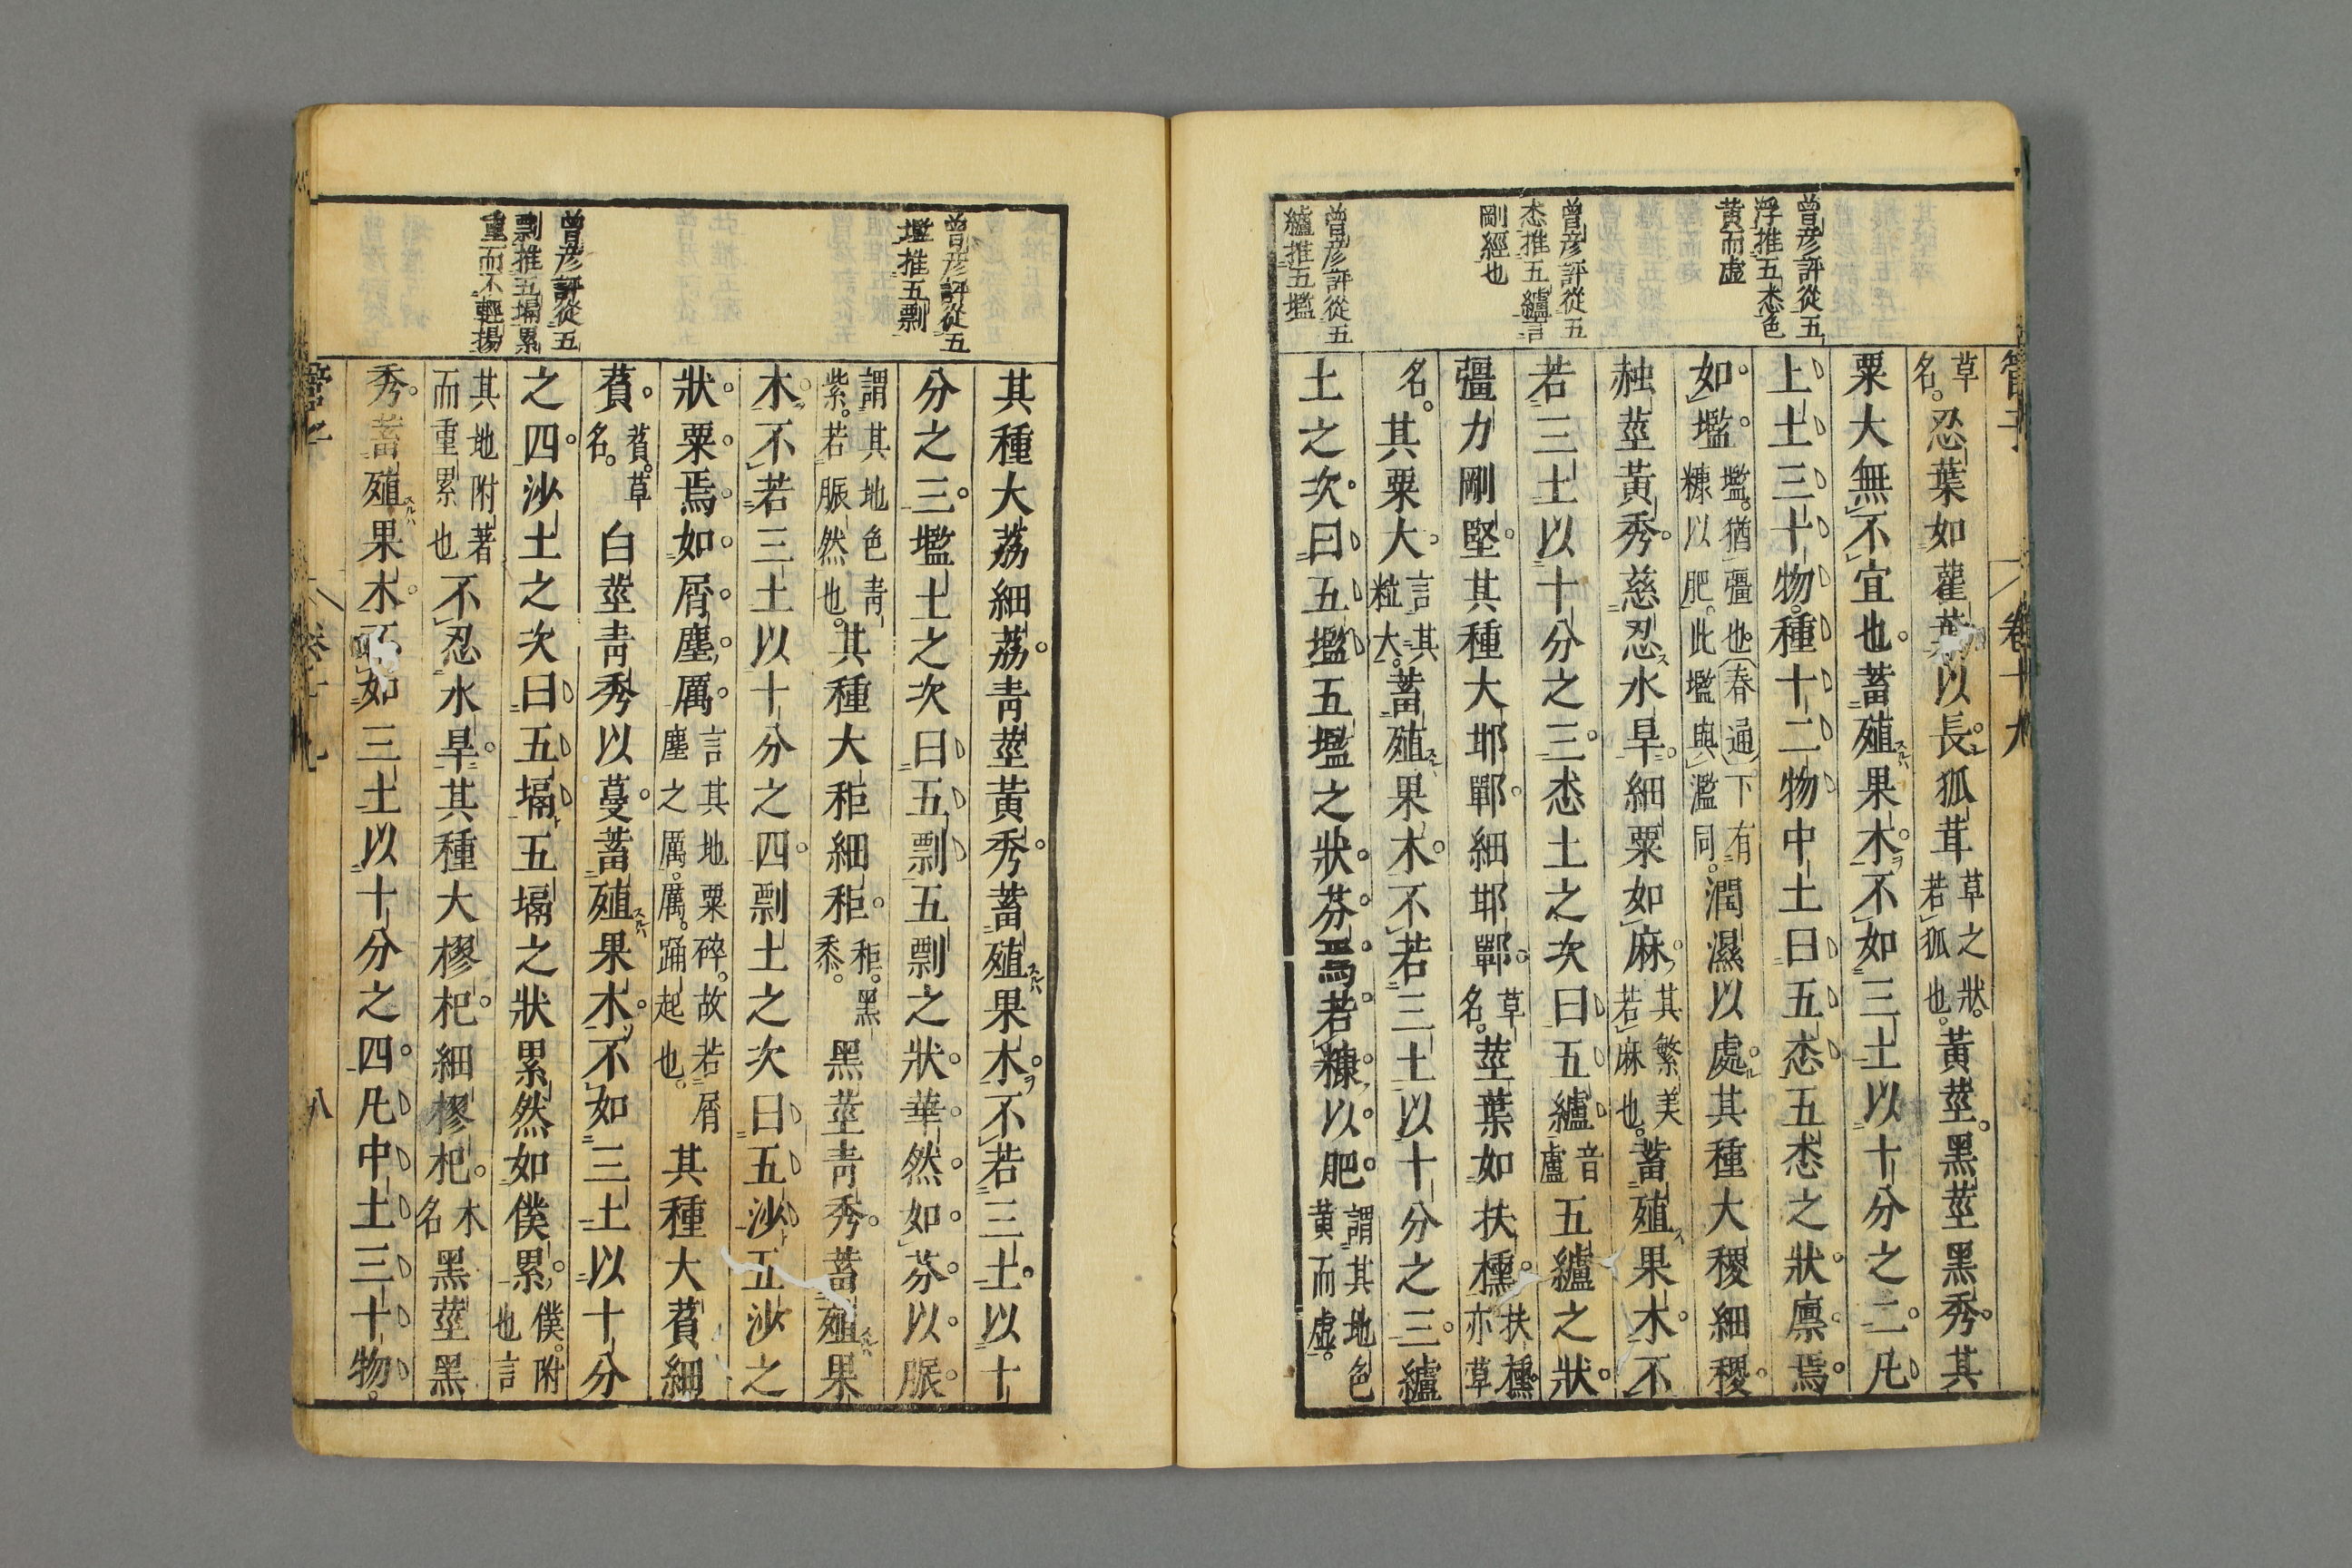 管子 卷十九
曾彥評從五
浮推五怸色
黃而虛
曾彥評從五
怸推五纑言
剛經也
曾彥評從五
纑推五壏
草名。忍葉如雚葉以長。狐茸草之狀。若狐也。黃莖。黑莖黑秀。其
粟大無不宜也。蓄殖果木。不如三土以十分之二。凡
上土三十物。種十二物中土曰五怸五怸之狀。廩焉。
如。壏。壏。猶彊也。春通下有糠以肥。此壏與濫同。潤濕以處。其種大稷細稷。
䞓莖黃秀。慈忍水旱。細粟如麻。其繁美若麻也。蓄殖果木。不
若三土以十分之三。怸土之次曰五纑音盧五纑之狀。
彊力剛堅。其種大邯鄲。細邯鄲。草名。莖葉如扶櫄。扶櫄亦草
名。其粟大。言其粒大。蓄殖果木。不若三土以十分之三。纑
土之次。曰五壏五壏之狀。芬焉若糠以肥。謂其地色黃而虛。
曾彥評從五
壏推五剽
曾彥評從五
剽推五塥累
重而不輕揚
其種大荔細荔。青莖黃秀。蓄殖果木。不若三土。以十
分之三。壏土之次曰五剽五剽之狀。華然如芬以脤。
謂其地色青紫。若脤然也。其種大秬細秬。秬。黑黍。黑莖青秀。蓄殖果
木。不若三土以十分之四。剽土之次曰五沙五沙之
狀。粟焉如屑塵厲。言其地粟碎。故若屑塵之厲。厲。踊起也。其種大萯細
萯。萯。草名。白莖青秀以蔓。蓄殖果木。不如三土以十分
之四。沙土之次曰五塥五塥之狀累然如僕累。僕。附也言
其地附著而重累也不忍水旱。其種大樛杞。細樛杞。木名黑莖黑
秀。蓄殖果木。不如三土以十分之四。凡中土三十物。
管子 卷十九 八